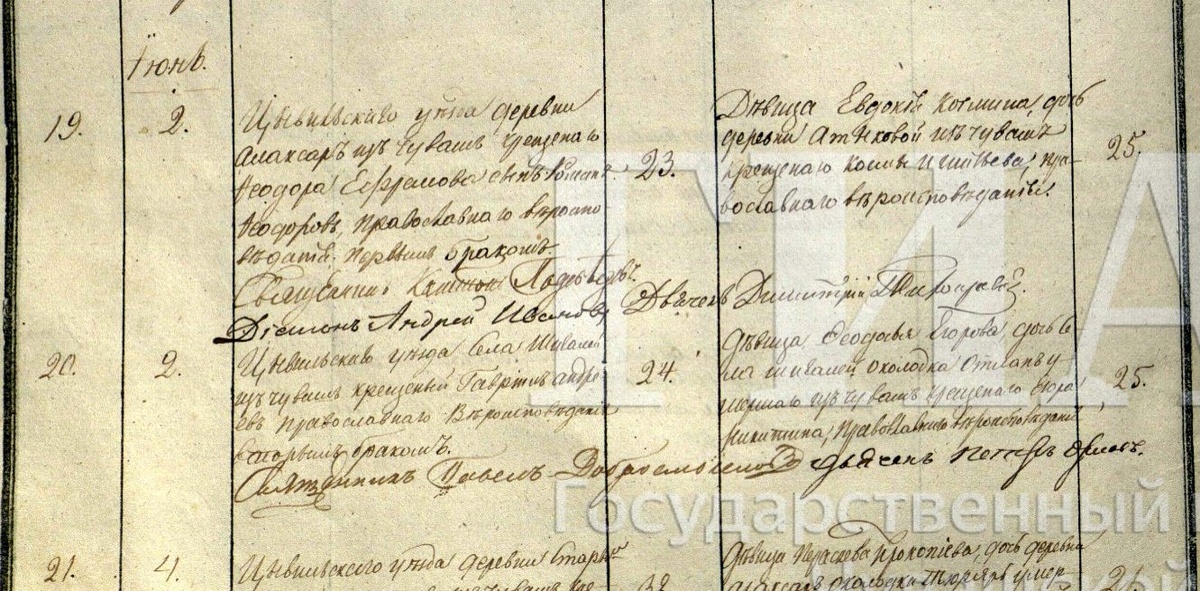 Іюнь.
19. 2. Цывильскаго уѣзда деревни
Алаксаръ изъ чувашъ крещенаго
Ѳеодора Ефремова сынъ Романъ
Ѳеодоровъ, Православнаго вѣроиспо-
вѣданія первымъ бракомъ.
23.
Дѣвица Евдокія Космина, дочь
деревни Атыковой изъ чувашъ
крещенаго Космы Игнатьева, пра-
вославнаго вѣроисповѣданія.
25.
Священникъ
Діаконъ Андрей Ивановъ Дьячекъ Димитрій
20. 2. Цывильскаго уѣзда села Шигалей
изъ чувашъ крещеный Гаврiилъ Андре-
евъ Православнаго Вѣроисповѣданія
вторымъ бракомъ.
24.
Дѣвица Ѳеодосья Егорова, дочь се
ла Шигалей околодка у
мершаго изъ чувашъ крещенаго Егора
Никитина, Православнаго вѣроисповѣданія
25.
Священникъ Павелъ Добросмысловъ Дьячекъ Петръ Орловъ.
21. 4. Цывильскаго уѣзда деревни
32.
Дѣвица Параскова Прокопіева, дочь деревни
околодка умер-
21.
ГИА
Государственный